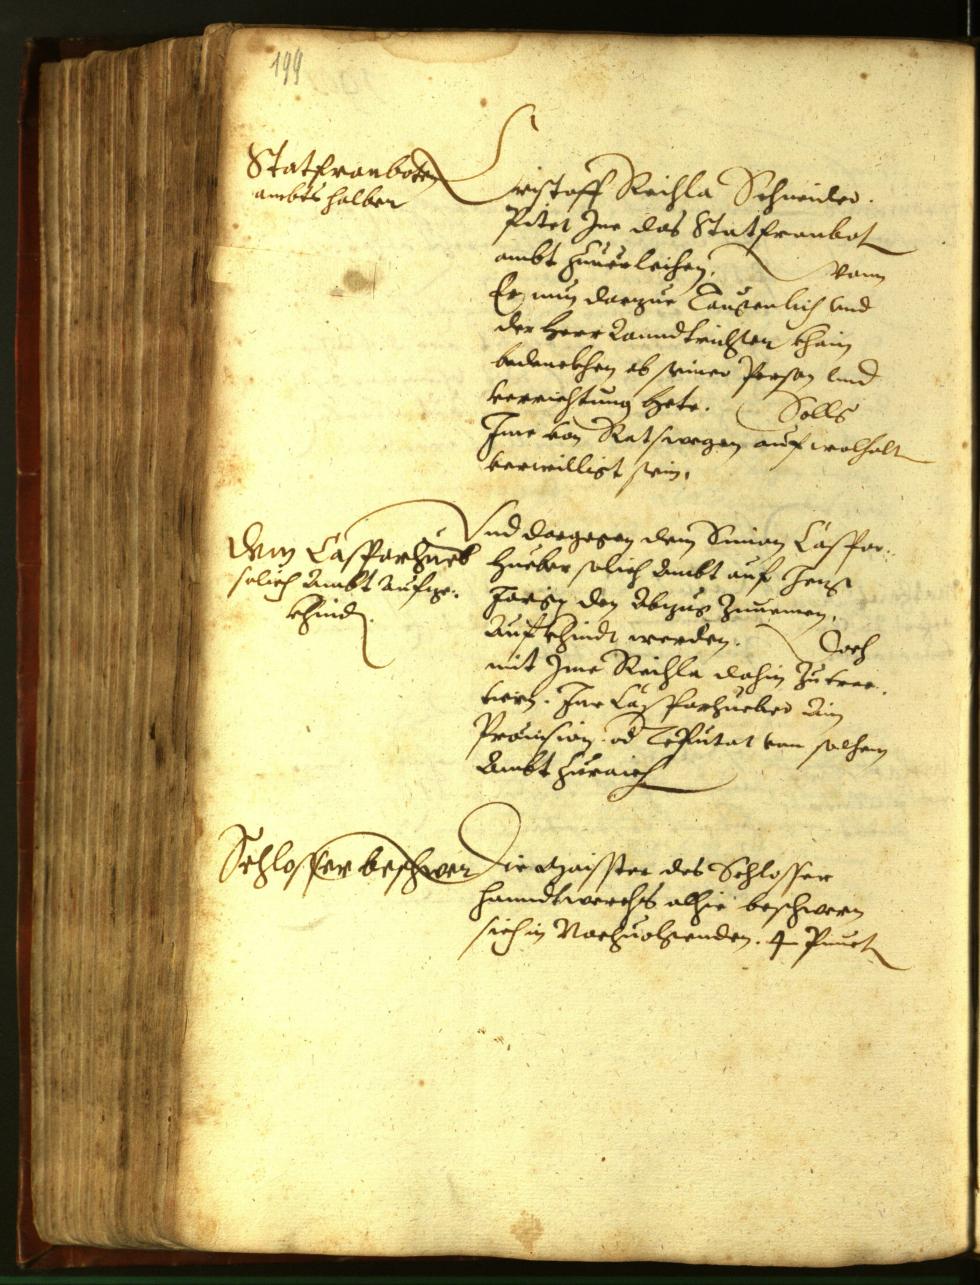 199
Statfronboten
ambts halber
Cristoff Reichla Schneider.
Pitet Ime das Statfronbot
ambt zuuerleihen. Wann
Er nun darzue Taugenlich vnd
der Herr Lanndtrichter khain
bedenckhen ob seiner Person vnd
verrichtung hete. Solls
Ime von Rats wegen auf wolhalt
verwilligt sein.
Dem Casparhueb
solich Ambt aufge-
khindt.
Vnd dargegen dem Simon Caspar-
hueber solich Ambt auf
den Abzug Zunemen,
Aufkhindt werden. Doch
mit Ime Reichla dahin Zutrac-
tiern. Ime Casparhueber ain
Prouision od Deputat von solhem
Ambt zuraich
Schlosser beschwer
Die Maister des Schlosser
Hanndtwerchs alhie beschwern
sich in Nachuolgenden. 4 Punct